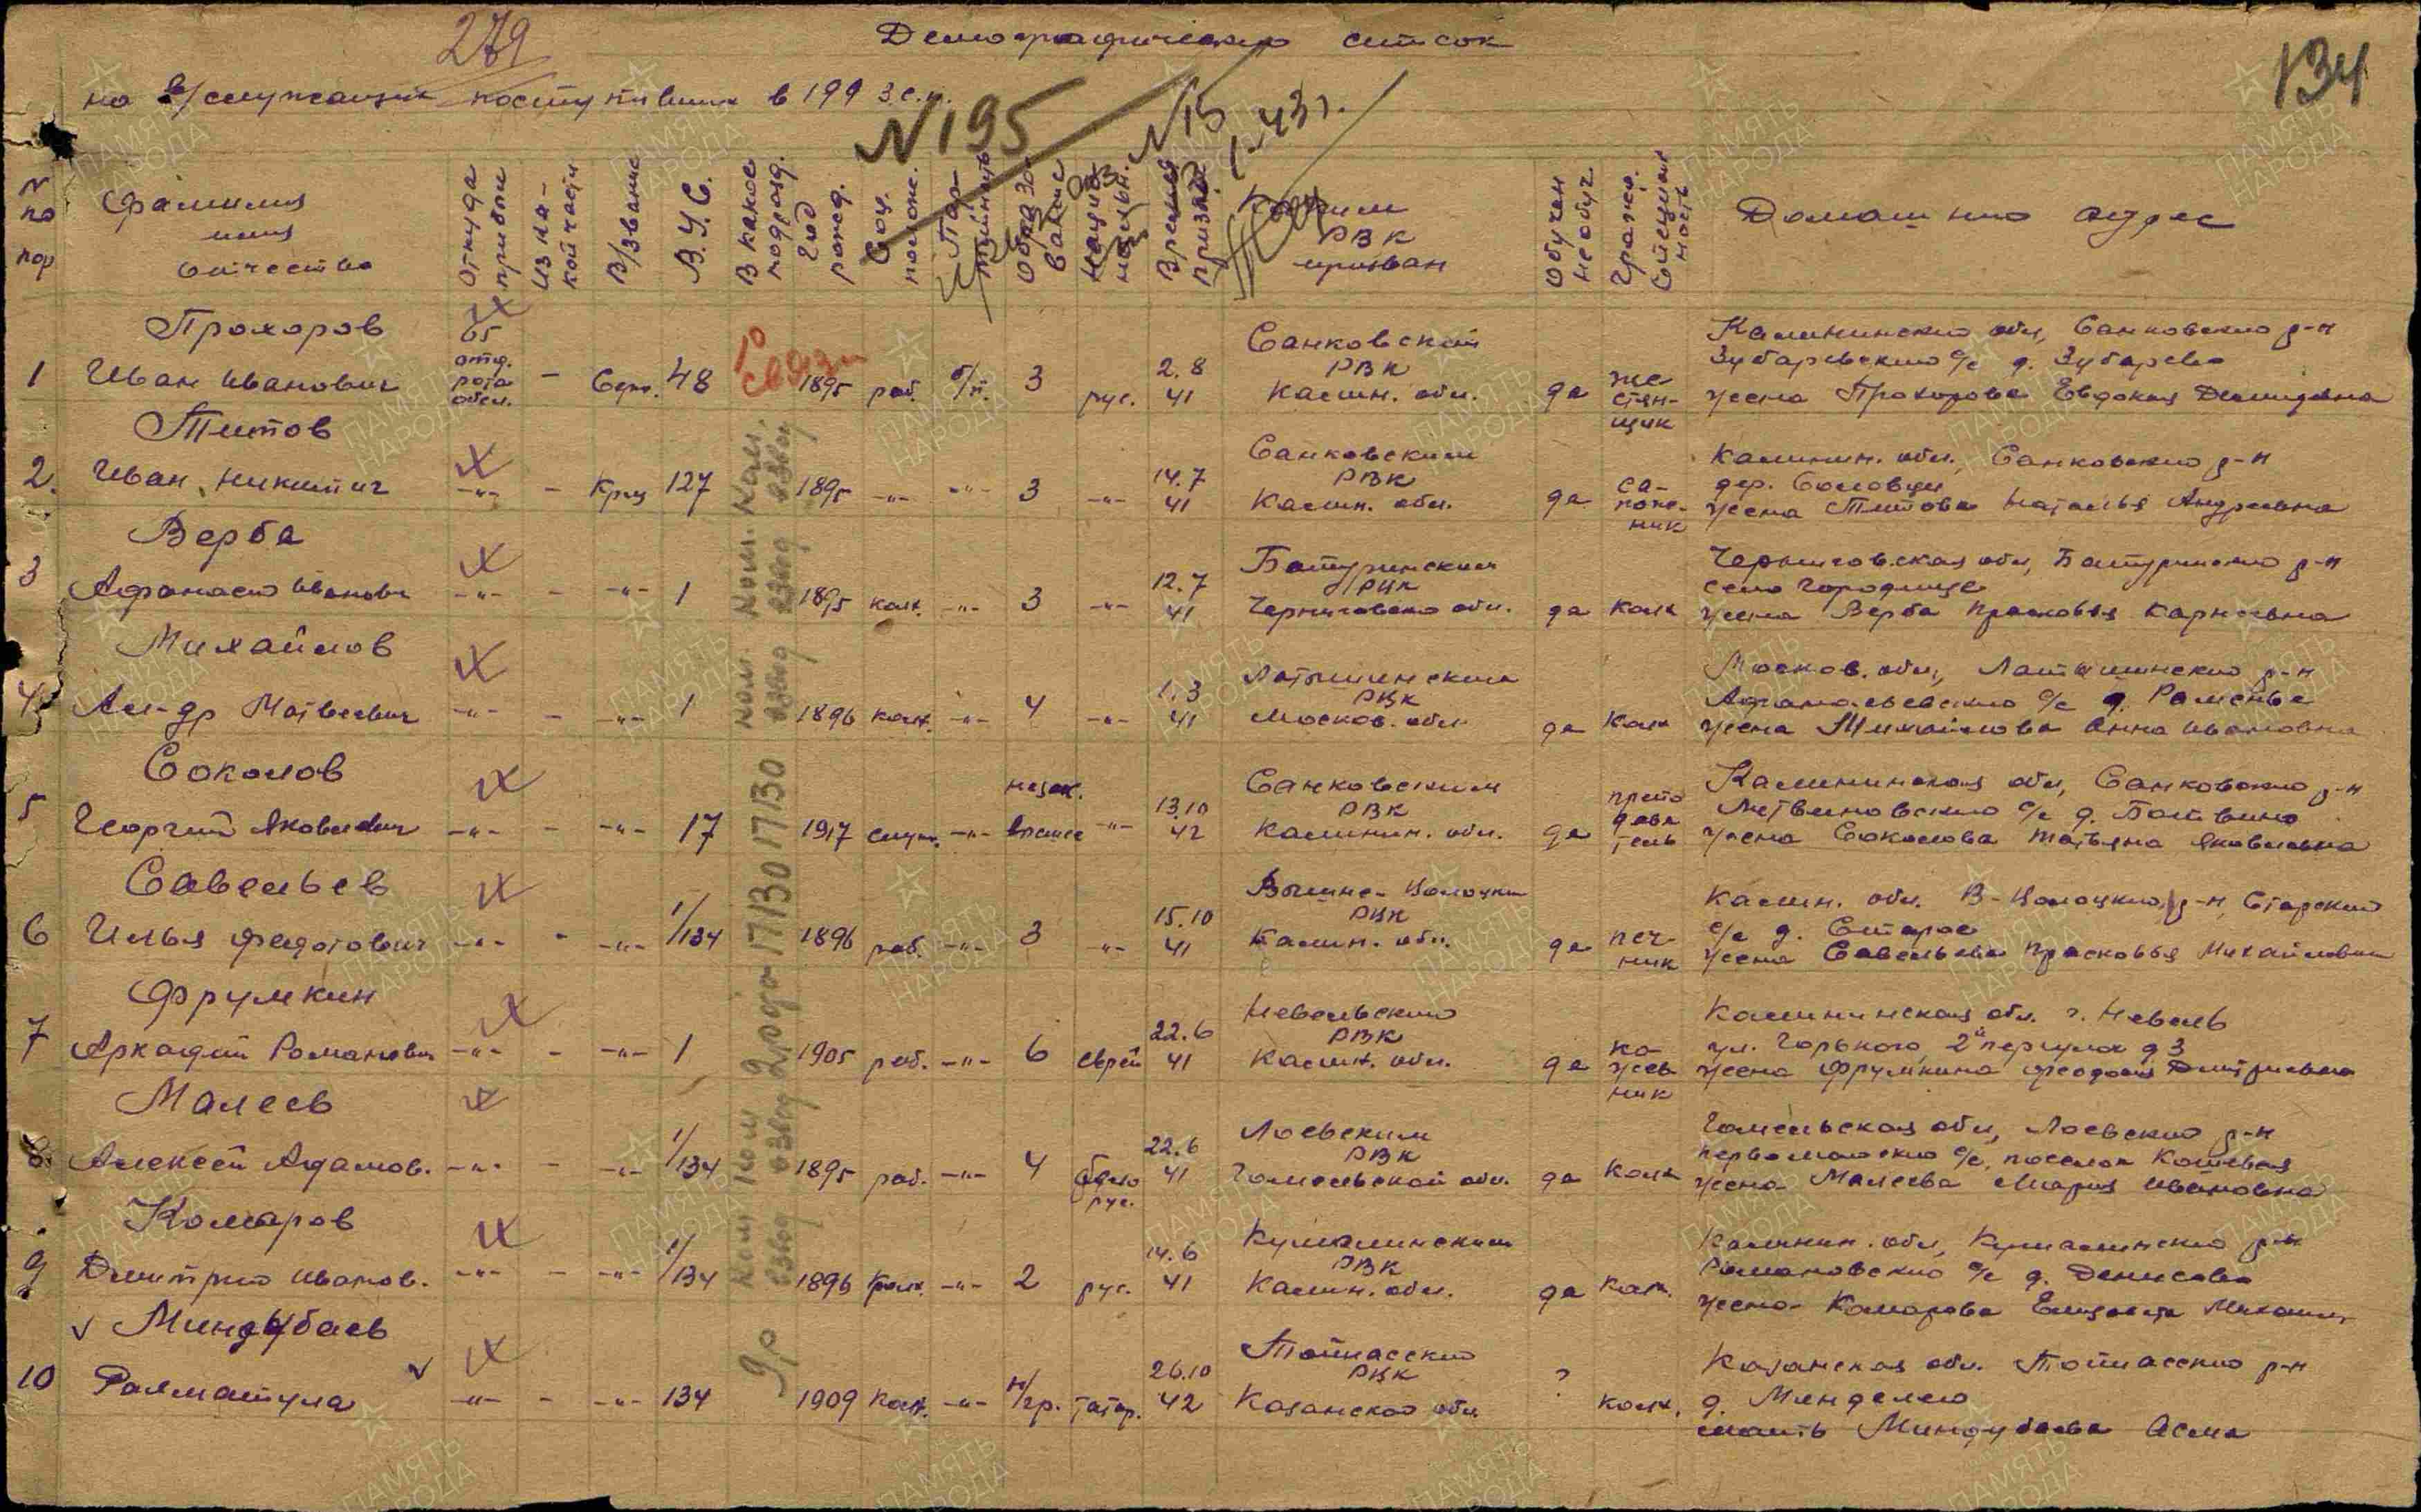 279
Демографический список
134
на в/служащих поступивших в 199 з.с.п.
N195
N15
1-43 г.
№ по пор
Фамилия имя отчество
Откуда прибыл
Из какой части
В/звание
В.У.С.
В какое подразд.
Год рожд.
Соц. полож.
Партийность
Образование
Национальн.
Время призыва
Каким РВК призван
Обучен необуч
Гражд. специальность
Домашний адрес
Прохоров
1 Иван Иванович 65 отд. рота обсл. - Серж. 48 1895 раб. б/п. 3 рус. 2.8 41 Санковский РВК Калин. обл. да жестянщик
Калининский обл, Санковский р-н
Зубаревский с/с д. Зубарево
жена Прохорова Евдокия Демидовна
Титов
2. Иван Никитич -"- - Крац 127 1895 -"- -"- 3 -"- 14.7 41 Санковским РВК Калин. обл. да сапожник
Калинин. обл., Санковский р-н
дер. Соловцы
жена Титова Наталья Андреевна
Верба
3 Афанасий Иванович -"- - -"- 1 1895 колх. -"- 3 -"- 12.7 41 Батуринским РВК Черниговской обл. да колх
Черниговская обл, Батуринский р-н
село Городище
жена Верба Прасковья Карнеевна
Михайлов
4 Ал-др Матвеевич -"- - -"- 1 1896 колх. -"- 4 -"- 1.3 41 Лотошинским РВК Москов. обл. да колх
Москов. обл., Лотошинский р-н
Афанасьевский с/с д. Раменье
жена Михайлова Анна Ивановна
Соколов
5 Георгий Яковлевич -"- - -"- 17 1917 служ. -"- незак. высшее -"- 13.10 42 Санковским РВК Калинин. обл. да преподаватель
Калининская обл, Санковский р-н
с/с д.
жена Соколова Татьяна Яковлевна
Савельев
6 Илья Федотович -"- - -"- 1/134 1896 раб. -"- 3 -"- 15.10 41 Вышне-Волоцким РВК Калин. обл. да печник
Калин. обл. В-Волоцкий р-н, Старский
с/с д. Старое
жена Савельева Прасковья Михайловна
Фрумкин
7 Аркадий Романович -"- - -"- 1 1905 раб. -"- 6 еврей 22.6 41 Невельский РВК Калин. обл. да кожевник
Калининская обл. г. Невель
ул. Горького 2й переулок д 3
жена Фрумкина Феодосия Дмитриевна
Малеев
8. Алексей Адамов. -"- - -"- 1/134 1895 раб. -"- 4 белорус. 22.6 41 Лоевским РВК Гомельской обл. да колх
Гомельская обл, Лоевский р-н
Первомайский с/с, поселок
жена Малеева Мария Ивановна
Комаров
9 Дмитрий Иванов. -"- - -"- 1/134 1896 колх. -"- 2 рус. 14.6 41 Кушалинским РВК Калин. обл. да колх.
Калинин. обл, Кушалинский р-н
Романовский с/с д. Денисово
жена Комарова Елизавета Михайл.
Миндубаев
10 Рахматула -"- - -"- 134 1909 колх. -"- н/гр. татар. 26.10 42 РВК Казанской обл. ? колх.
Казанская обл. р-н
д. Менделево
мать Миндубаева Асма
Р связи
Ком. Ком. взвод взвод
Ком. Ком. взвод взвод
17130 17130
2 рота
Ком Ком взвод взвод
9 р
ПАМЯТЬ НАРОДА